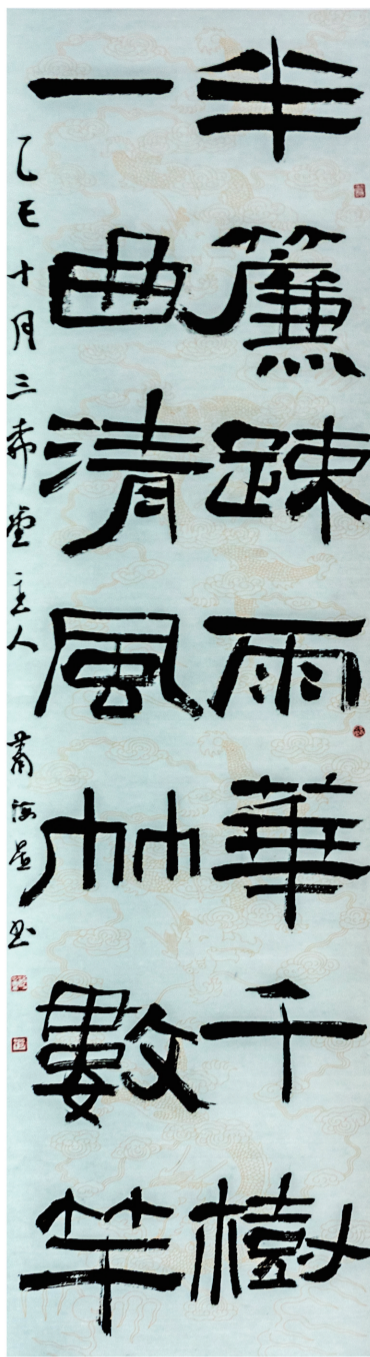 半簾疎雨華千樹
一曲清風竹數竿
乙巳十月三希堂主人蕭海墨书